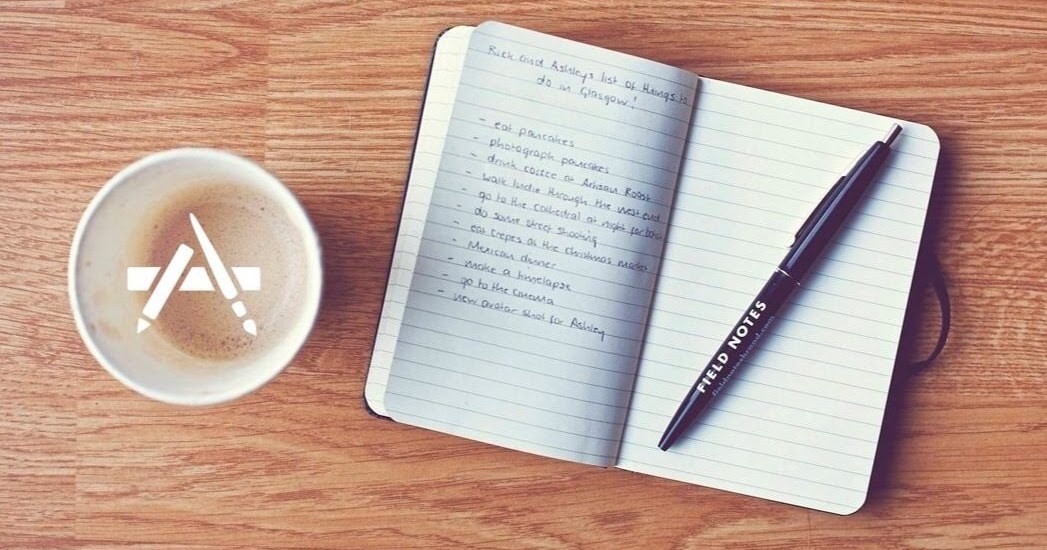 Rick and Ashleys list of things to
do in Glasgow!
- eat pancakes
- photograph pancakes
- drink coffee at Artisan Roast
- walk Indie through the west end
- go to the cathedral at night for
- do some street shooting
eat crepes at the christmas market
- Mexican dinner
- make a timelapse
- go to the cinema
- new avatar shot for Ashley
FIELD NOTES
fieldnotesbrand.com